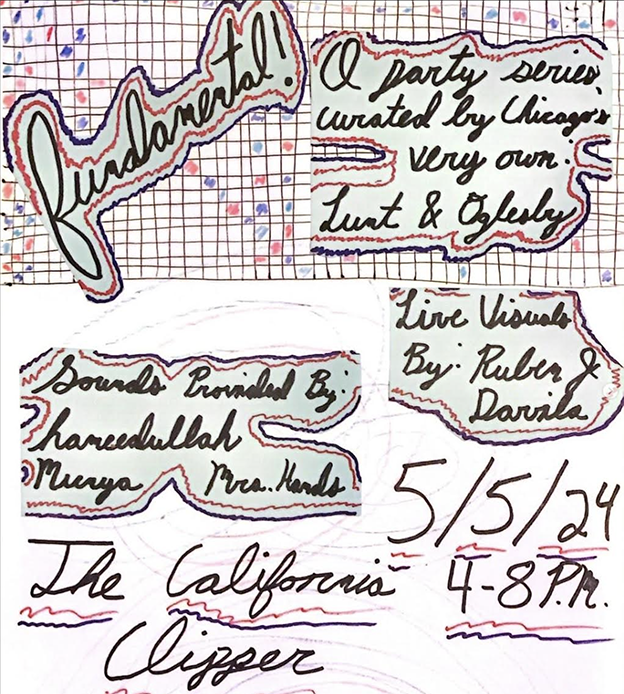 fundamental!
A party series,
curated by Chicago's
very own:
Lunt & Oglesby
Live Visuals
By: Ruben J
Davila
Sounds Provided By:
hameedullah
Munya Mrs. Hands
5/5/24
The California 4-8 P.M.
Clipper